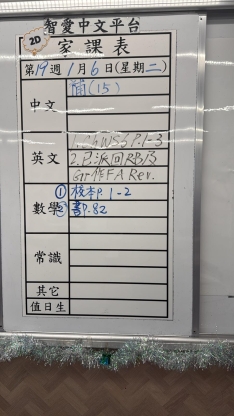 智愛中文平台
2D
家課表
第19週1月6日(星期二)
中文
簡(15)
英文
1. G.WS3 P.1-3
2.已派回RB/3
Gr作FA Rev.
數學
① 校本P.1-2
② 書P.82
常識
其它
值日生